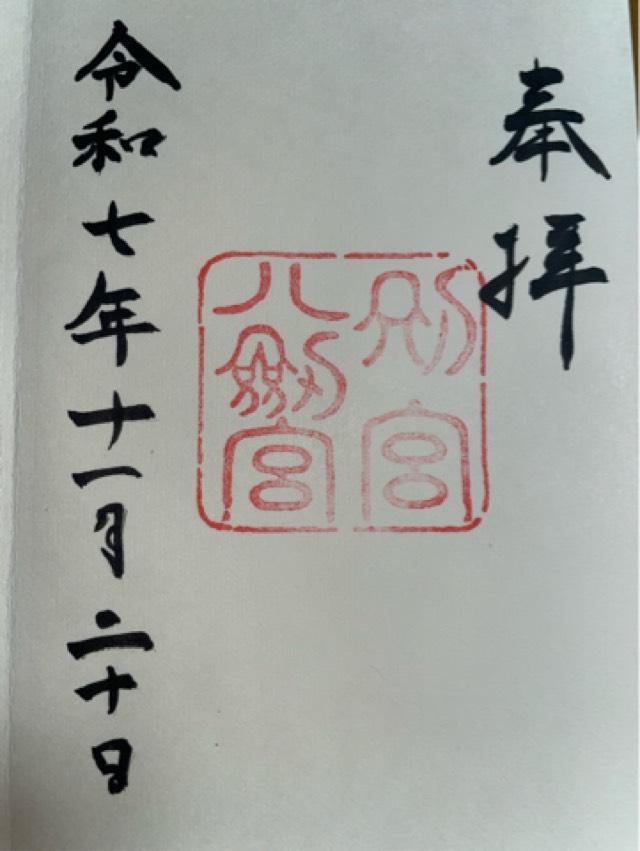 奉拝
別宮
八剱宮
令和七年十一月二十日